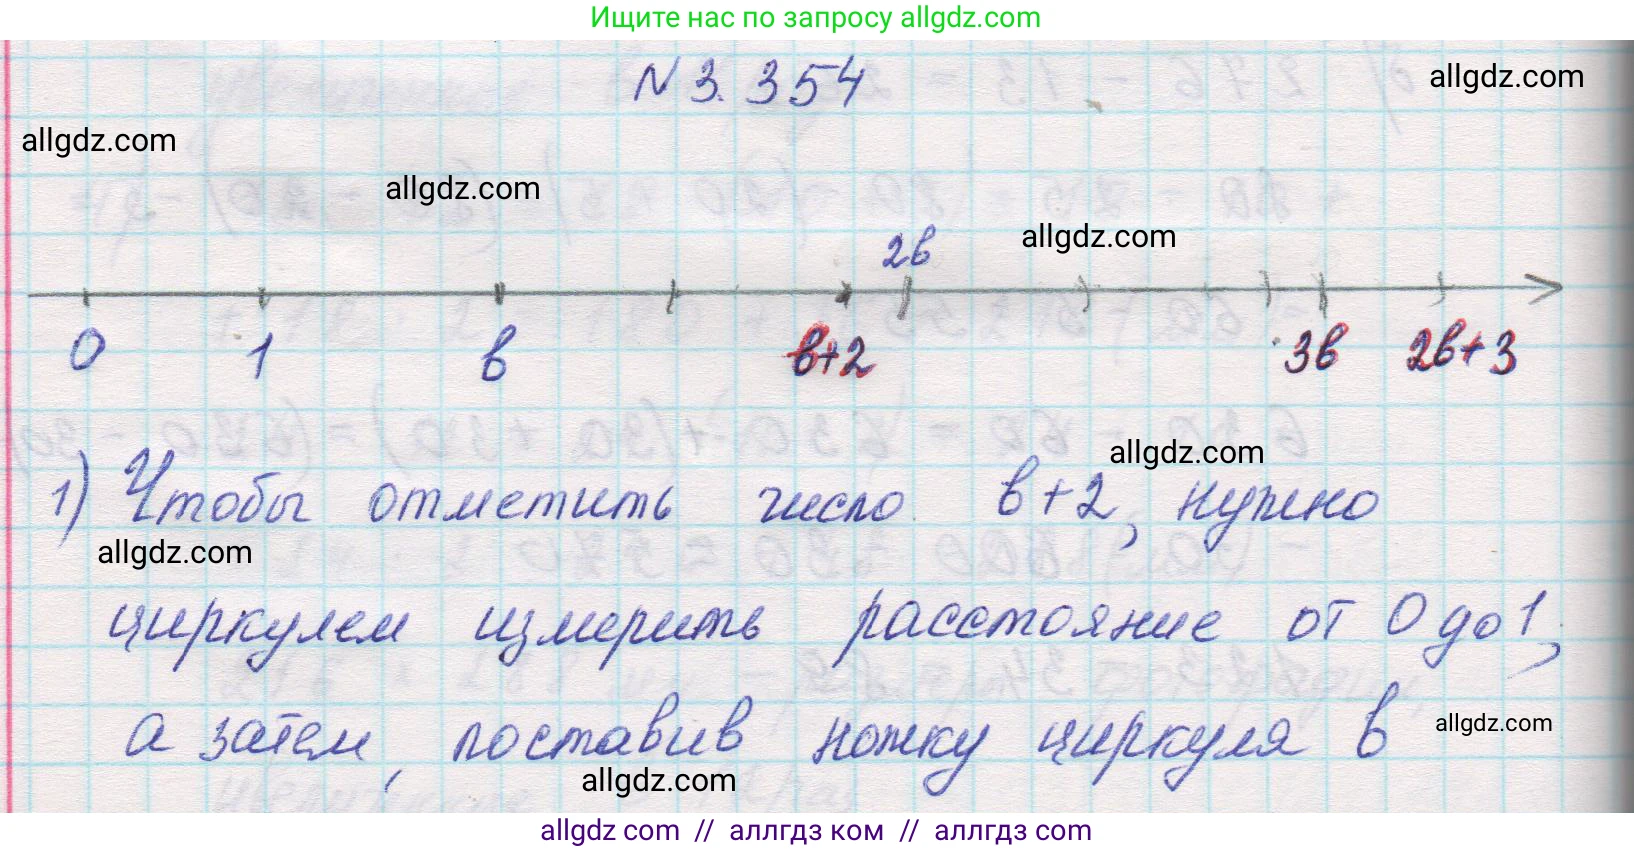 Ищите нас по запросу allgdz.com
N 3.354
allgdz.com
allgdz.com
allgdz.com
allgdz.com
2в
0 1 в в+2 3в 2в+3
allgdz.com
1) Чтобы отметить число в+2, нужно
allgdz.com
циркулем измерить расстояние от 0 до 1,
а затем, поставив ножку циркуля в
allgdz.com
allgdz.com
allgdz com // аллгдз ком // аллгдз com